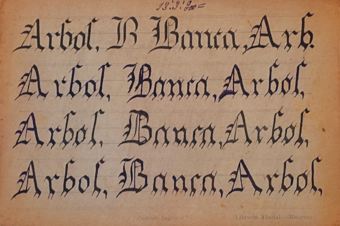 Arbol, B Banca, Arb.
Arbol, Banca, Arbol,
Arbol, Banca, Arbol,
Arbol, Banca, Arbol,